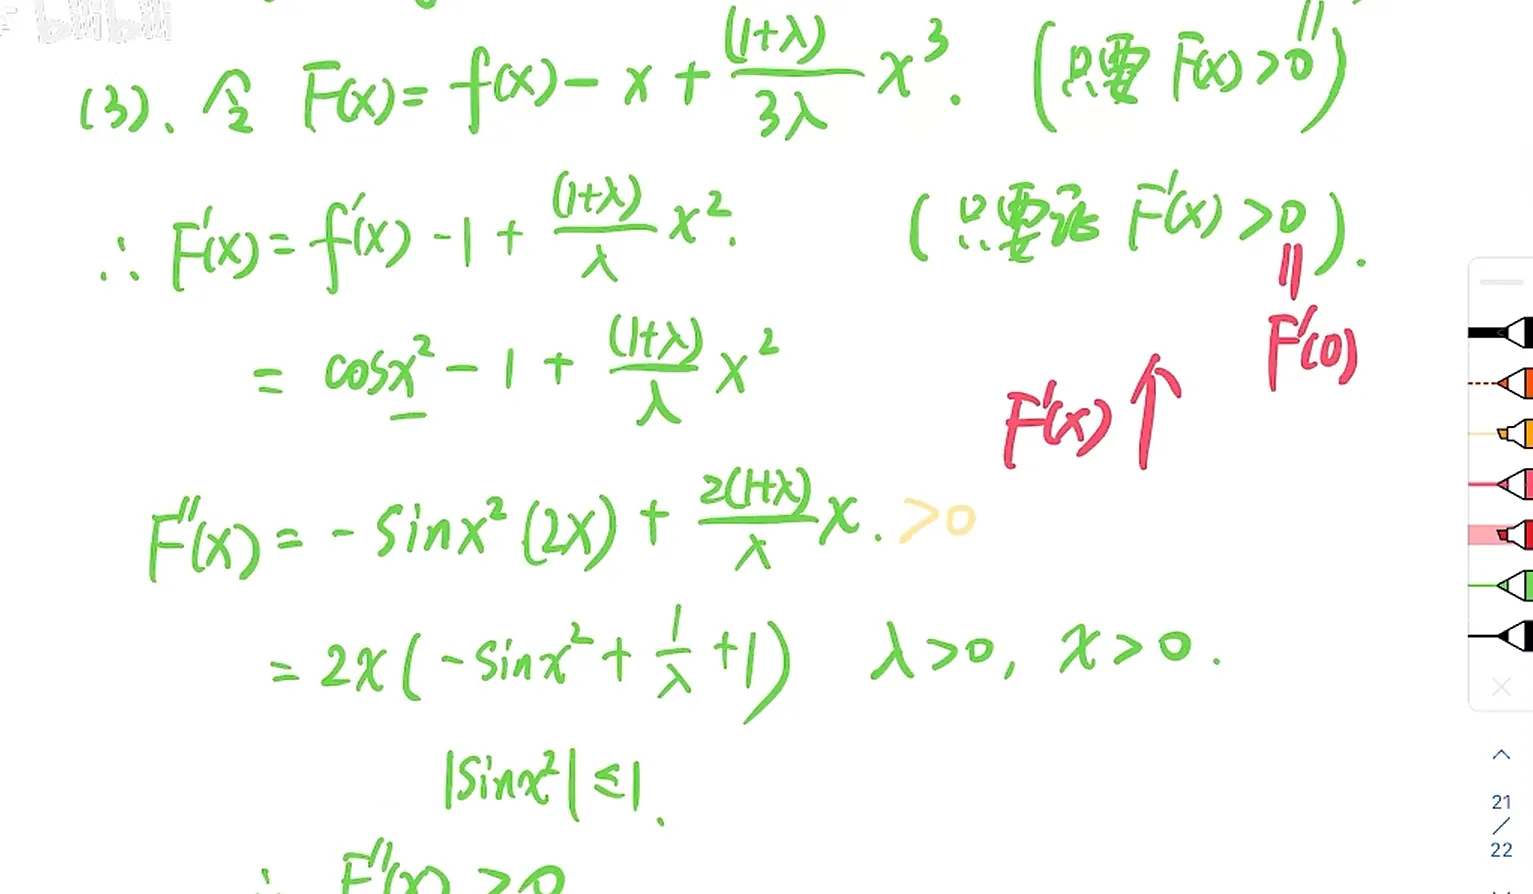 bilibili
(3). 令 F(x) = f(x) - x + (1+λ)/3λ x³. (只要 F(x) > 0)
∴ F'(x) = f'(x) - 1 + (1+λ)/λ x². (只要证 F'(x) > 0).
= cosx² - 1 + (1+λ)/λ x²
F'(x) ↑
= F'(0)
F''(x) = - sinx² (2x) + 2(1+λ)/λ x. > 0
= 2x ( - sinx² + 1/λ + 1 ) λ > 0, x > 0.
|sinx²| ≤ 1.
∴ F''(x) > 0
21
/
22